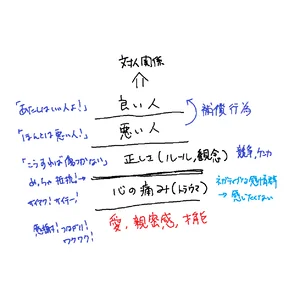 対人関係
「あたしはいい人よ!」
良い人
補償行為
「ほんとは悪い人!」
悪い人
「こうすれば傷つかない」
正しさ(ルール,観念)
競争,ケンカ
めっちゃ抵抗!
サイアク!サイテー!
心の痛み(トラウマ)
ネガティブな感情
→感じたくない
愛,親密感,才能
感動!つながり!
ワクワク!